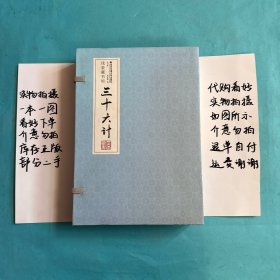 实物拍摄
一本一图
看好下单
介意勿拍
库存正版
部分二手
线装藏书馆
三十六计
代购看好
实物拍摄
如图所示
介意勿拍
退单自付
运费谢谢